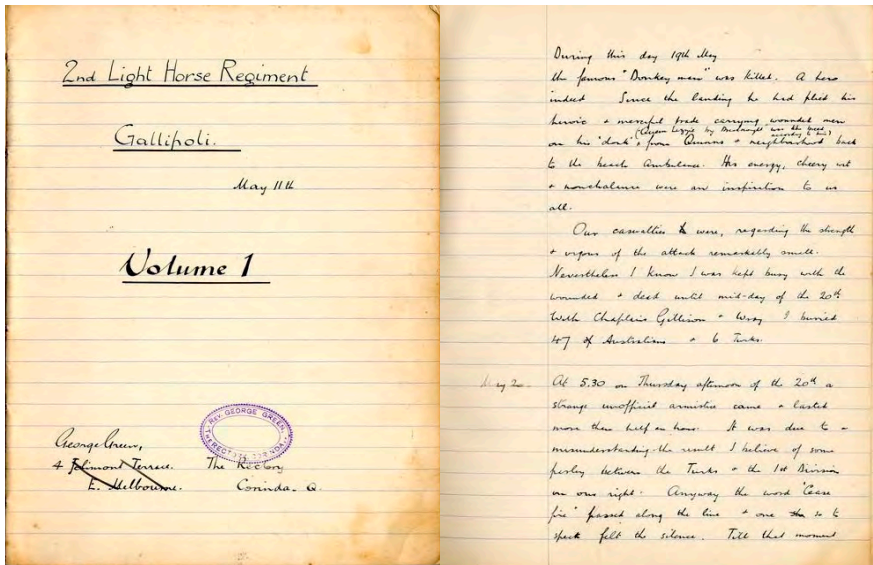 2nd Light Horse Regiment
Gallipoli.
May 11th
Volume 1
REV. GEORGE GREEN,
RECTORY CORINDA
George Green,
4 Jolimont Terrace.
E. Melbourne.
The Rectory
Corinda. Q.
During this day 19th May
the famous "Donkey man" was killed. A hero
indeed Since the landing he had plied his
heroic + merciful trade carrying wounded men
(Queen Lizzie by Midnight was the breed
according to him)
on his 'donk's from Quinns + neighbourhood back
to the beach ambulance. His energy, cheery wit
+ nonchalance were an inspiration to us
all.
Our casualties were, regarding the strength
+ vigour of the attack remarkably small.
Nevertheless I know I was kept busy with the
wounded + dead until mid-day of the 20th
With Chaplains Gillison + Wray I buried
47 of Australians + 6 Turks.
May 20
At 5.30 on Thursday afternoon of the 20th a
strange unofficial armistice came + lasted
more than half an hour. It was due to a
misunderstanding the result I believe of some
parley between the Turks + the 1st Division
on our right. Anyway the word "Cease
fire" passed along the line + one so to
speak felt the silence. Till that moment